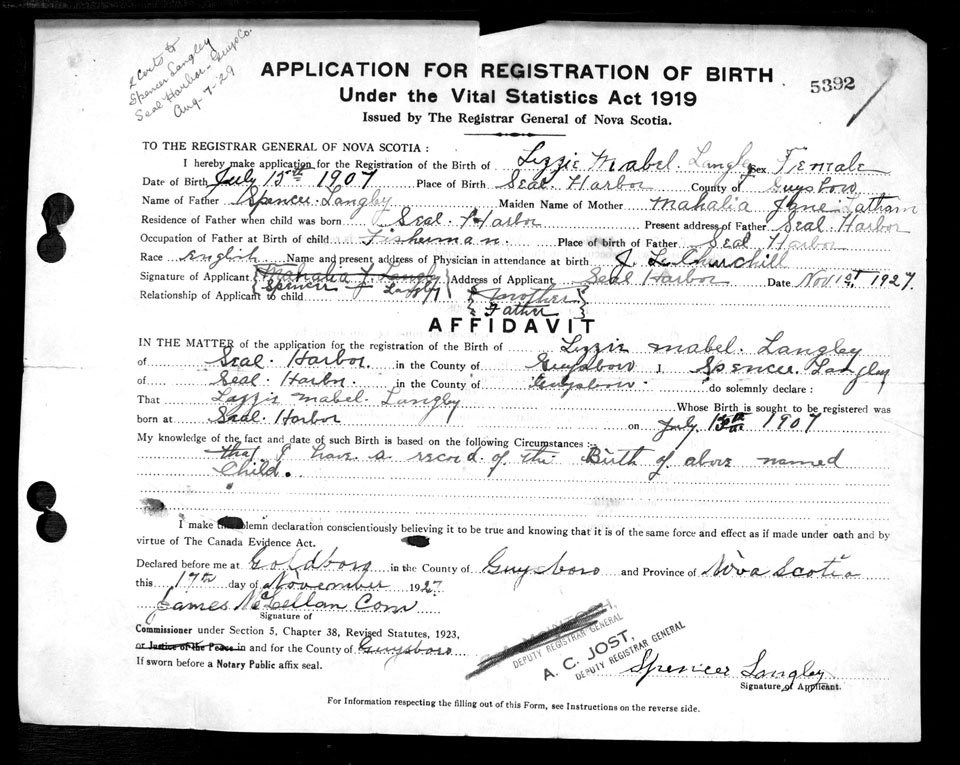 2 Certs to
Spencer Langley
Seal Harbor - Guys Co.
Aug - 7 - 29
APPLICATION FOR REGISTRATION OF BIRTH
5392
Under the Vital Statistics Act 1919
Issued by The Registrar General of Nova Scotia.
TO THE REGISTRAR GENERAL OF NOVA SCOTIA :
I hereby make application for the Registration of the Birth of Lizzie Mabel. Langley Sex Female
Date of Birth July 15th 1907 Place of Birth Seal Harbor County of Guysboro
Name of Father Spencer Langley Maiden Name of Mother Mahalia Jane Latham
Residence of Father when child was born Seal Harbor Present address of Father Seal Harbor
Occupation of Father at Birth of child Fisherman. Place of birth of Father Seal Harbor
Race English Name and present address of Physician in attendance at birth J. L. Churchill
Signature of Applicant Mahalia J. Langley Address of Applicant Seal Harbor Date Nov 1st 1927.
Spencer Langley
Relationship of Applicant to child Mother
Father
AFFIDAVIT
IN THE MATTER of the application for the registration of the Birth of Lizzie Mabel. Langley
of Seal. Harbor. in the County of Guysboro I Spencer Langley
of Seal. Harbor. in the County of Guysboro. do solemnly declare :
That Lizzie Mabel. Langley Whose Birth is sought to be registered was
born at Seal. Harbor on July. 15th 1907
My knowledge of the fact and date of such Birth is based on the following Circumstances :
that I have a record of the Birth of above named
Child.
I make solemn declaration conscientiously believing it to be true and knowing that it is of the same force and effect as if made under oath and by
virtue of The Canada Evidence Act.
Declared before me at Goldboro in the County of Guysboro and Province of Nova Scotia
this 17th day of November 1927.
James McLellan Com
Signature of
Commissioner under Section 5, Chapter 38, Revised Statutes, 1923,
or Justice of the Peace in and for the County of Guysboro
If sworn before a Notary Public affix seal.
DEPUTY REGISTRAR GENERAL
A. C. JOST,
DEPUTY REGISTRAR GENERAL
Spencer Langley
Signature of Applicant.
For Information respecting the filling out of this Form, see Instructions on the reverse side.